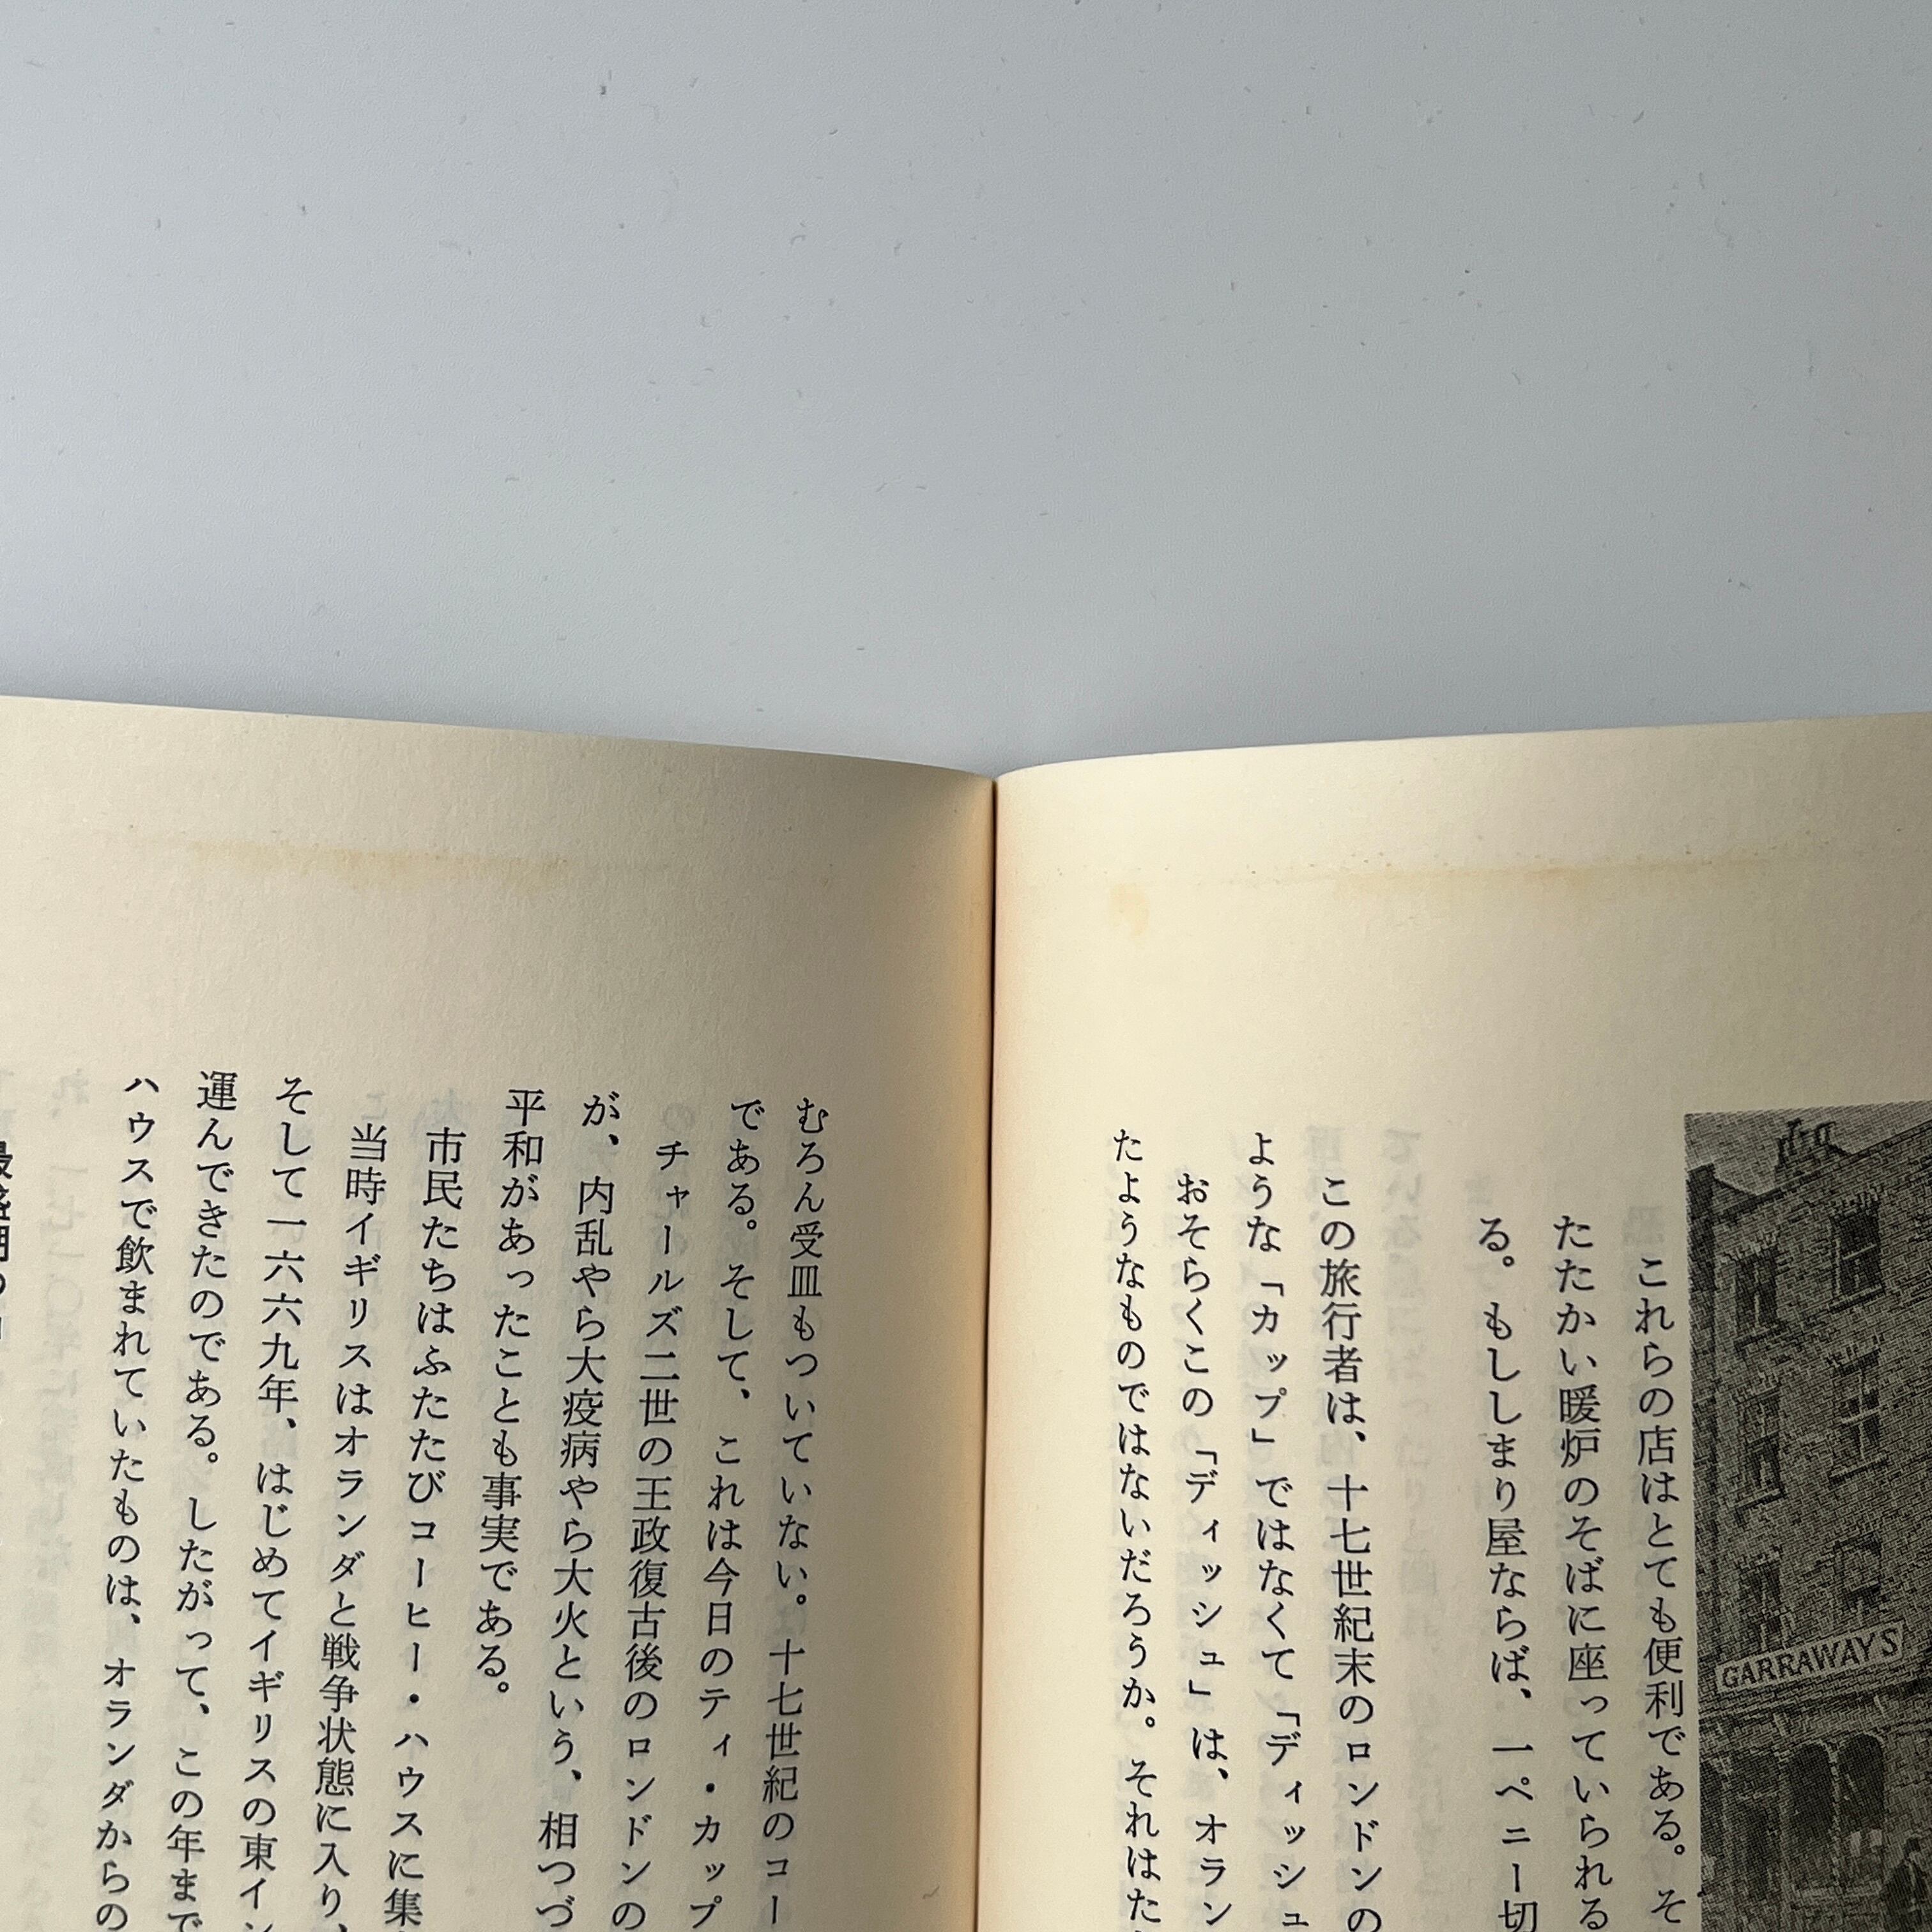 GARRAWAY'S
これらの店はとても便利である。そ
たたかい暖炉のそばに座っていられる
る。もししまり屋ならば、一ペニー切
この旅行者は、十七世紀末のロンドンの
ような「カップ」ではなくて「ディッシュ
おそらくこの「ディッシュ」は、オラン
たようなものではないだろうか。それはた
むろん受皿もついていない。十七世紀のコー
である。そして、これは今日のティ・カップ
チャールズ二世の王政復古後のロンドンの
が、内乱やら大疫病やら大火という、相つづ
平和があったことも事実である。
市民たちはふたたびコーヒー・ハウスに集
当時イギリスはオランダと戦争状態に入り、
そして一六六九年、はじめてイギリスの東イン
運んできたのである。したがって、この年まで
ハウスで飲まれていたものは、オランダからの